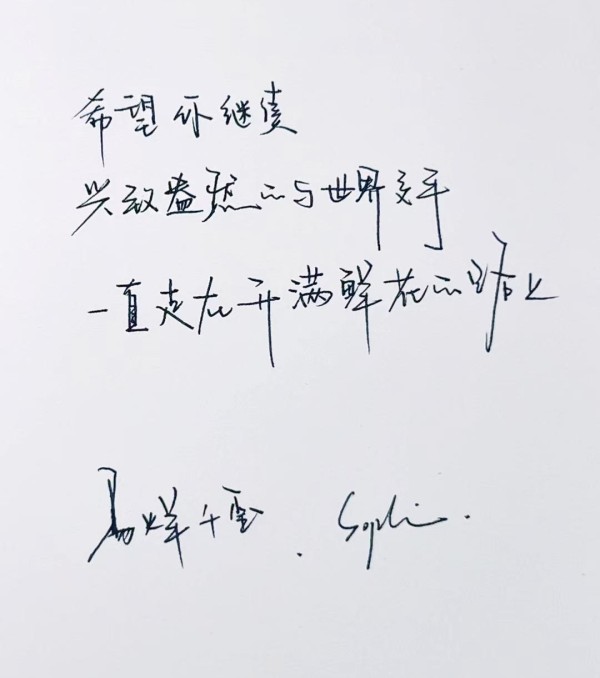 希望你继续
兴致盎然的与世界交手
一直走在开满鲜花的路上
易烊千玺 . Sophie.